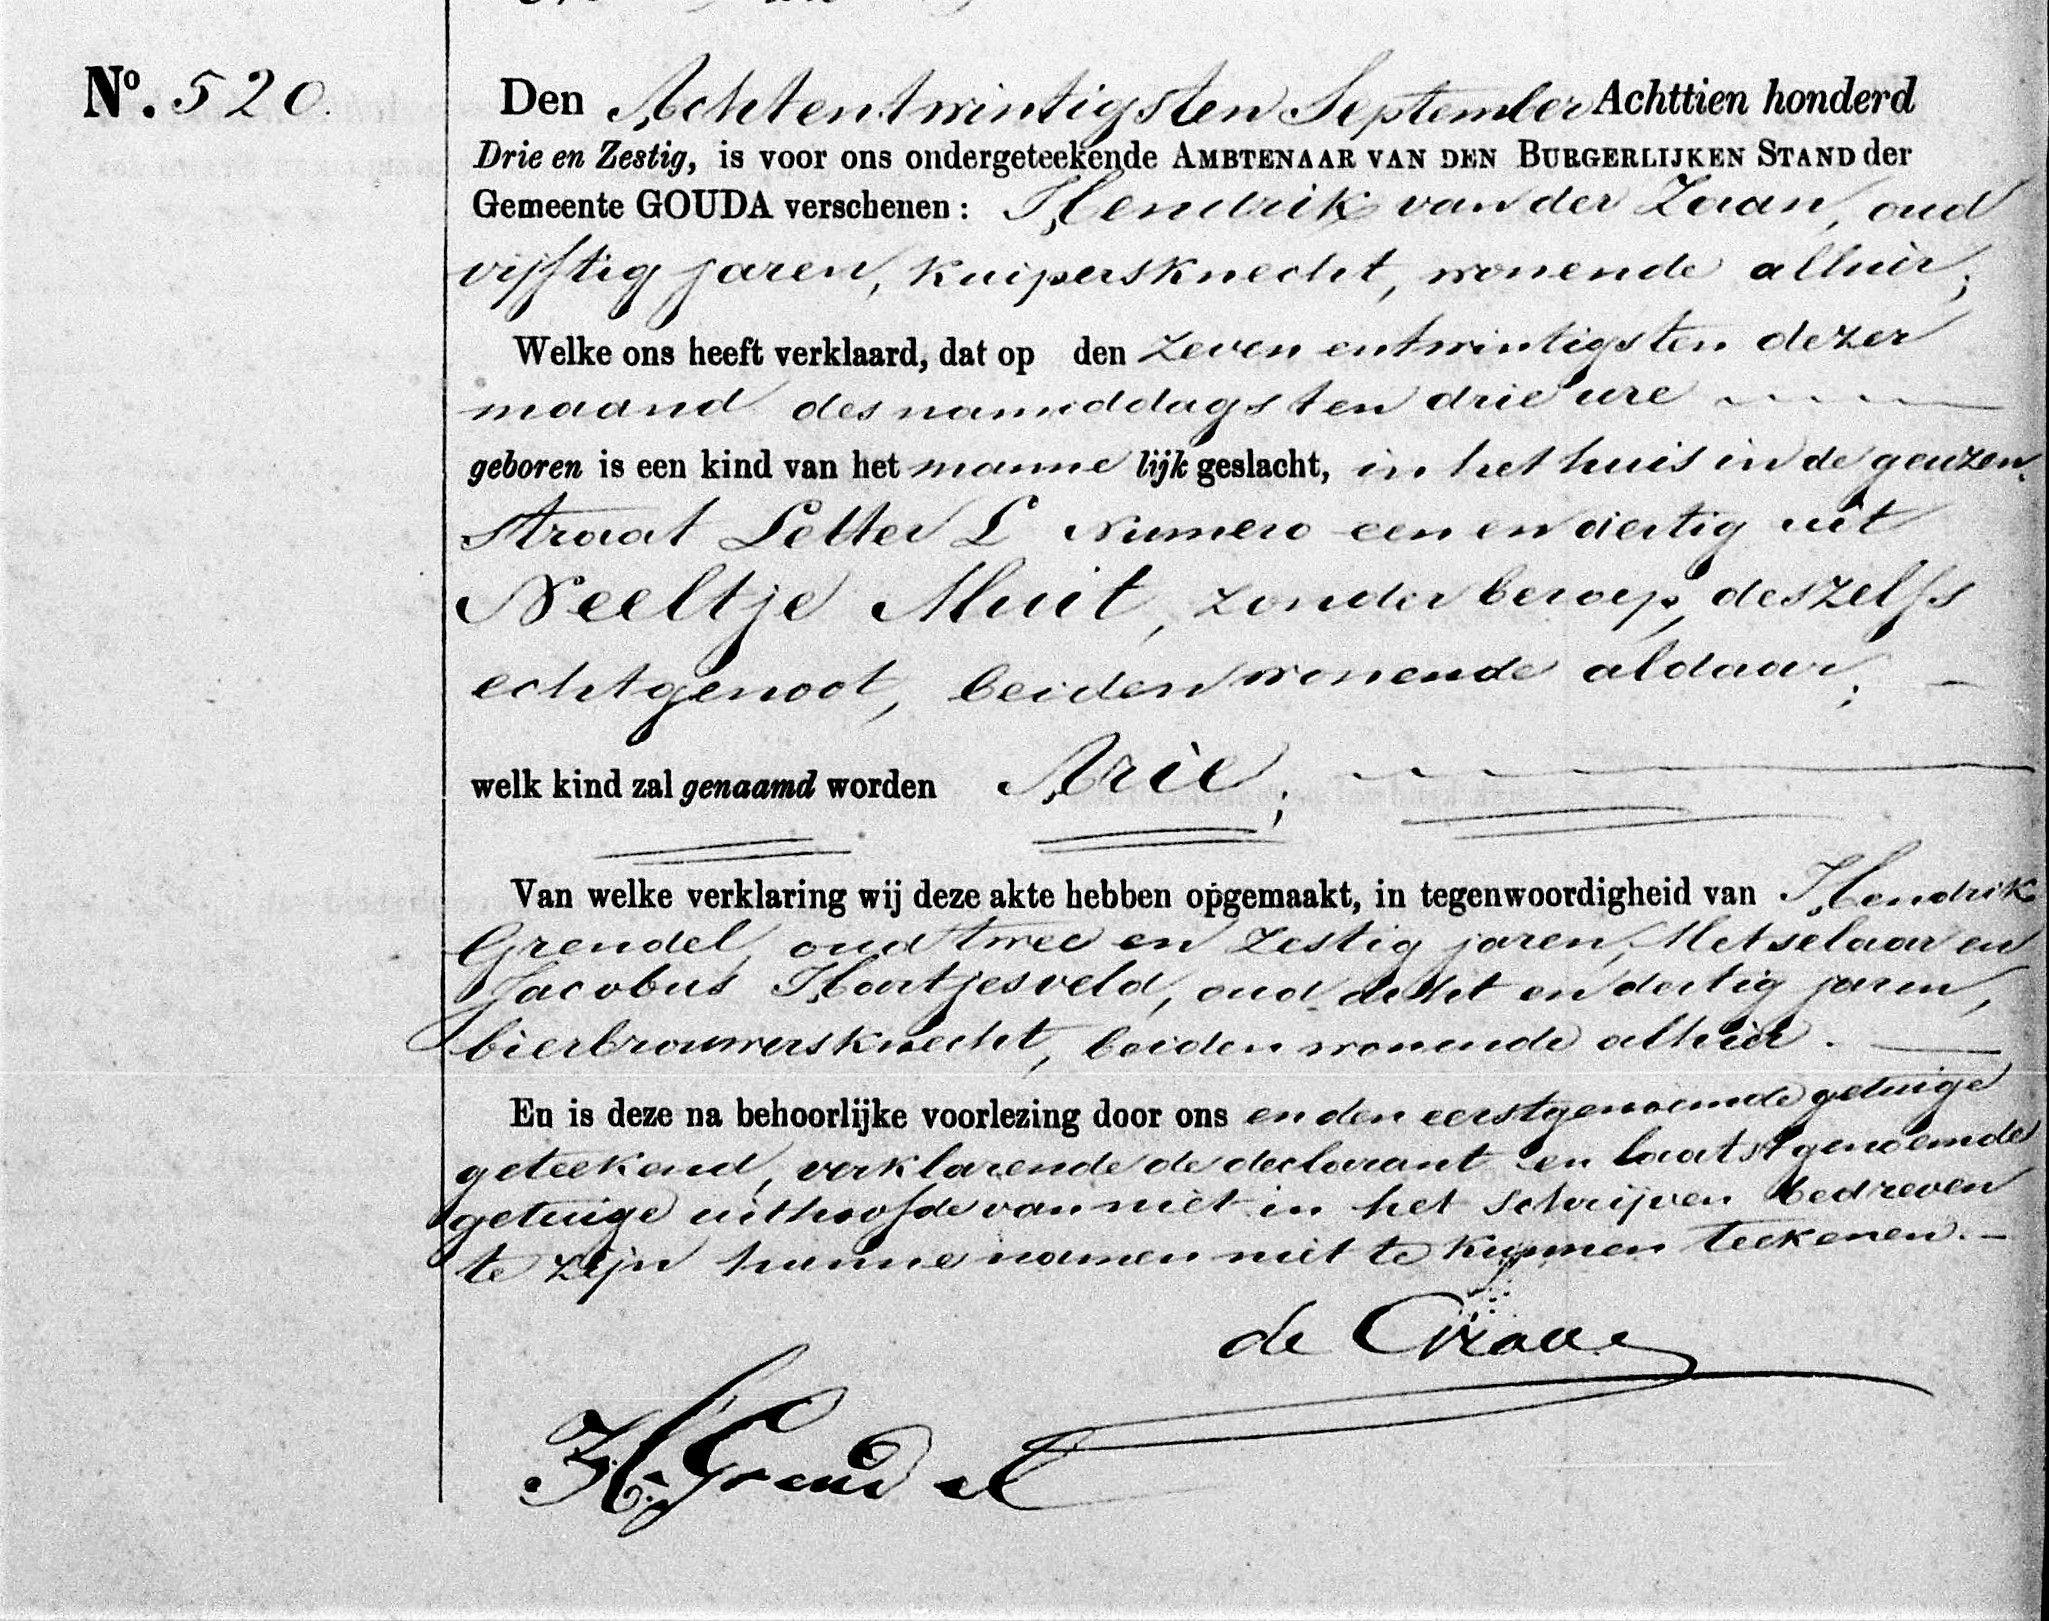 No. 520.
Den Achtentwintigsten September Achttien honderd
Drie en Zestig, is voor ons ondergeteekende AMBTENAAR VAN DEN BURGERLIJKEN STAND der
Gemeente GOUDA verschenen: Hendrik van der Zaan, oud
vijftig jaren, kuipersknecht, wonende alhier;
Welke ons heeft verklaard, dat op den zeven entwintigsten dezer
maand des namiddags ten drie ure
geboren is een kind van het manne lijk geslacht, in het huis in de geuzen-
straat Letter L Numero een en dertig uit
Neeltje Muit, zonder beroep, deszelfs
echtgenoot, beiden wonende aldaar; —
welk kind zal genaamd worden Arie;
Van welke verklaring wij deze akte hebben opgemaakt, in tegenwoordigheid van Hendrik
Grendel, oud twee en zestig jaren, Metselaar en
Jacobus Hartjesveld, oud acht en dertig jaren,
bierbrouwersknecht, beiden wonende alhier. —
En is deze na behoorlijke voorlezing door ons en den eerstgenoemde getuige
geteekend, verklarende de declarant en laatstgenoemde
getuige uithoofde van niet in het schrijven bedreven
te zijn hunne namen niet te kunnen teekenen. —
de Graaf
H. Grendel